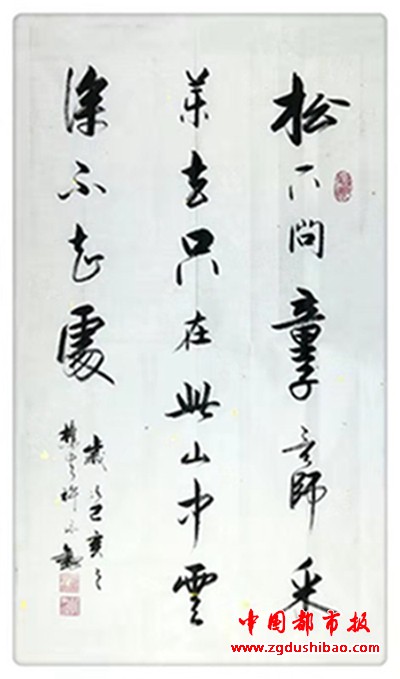 松下問童子言師采
藥去只在此山中雲
深不知處
歲次己亥之
中国都市报
www.zgdushibao.com